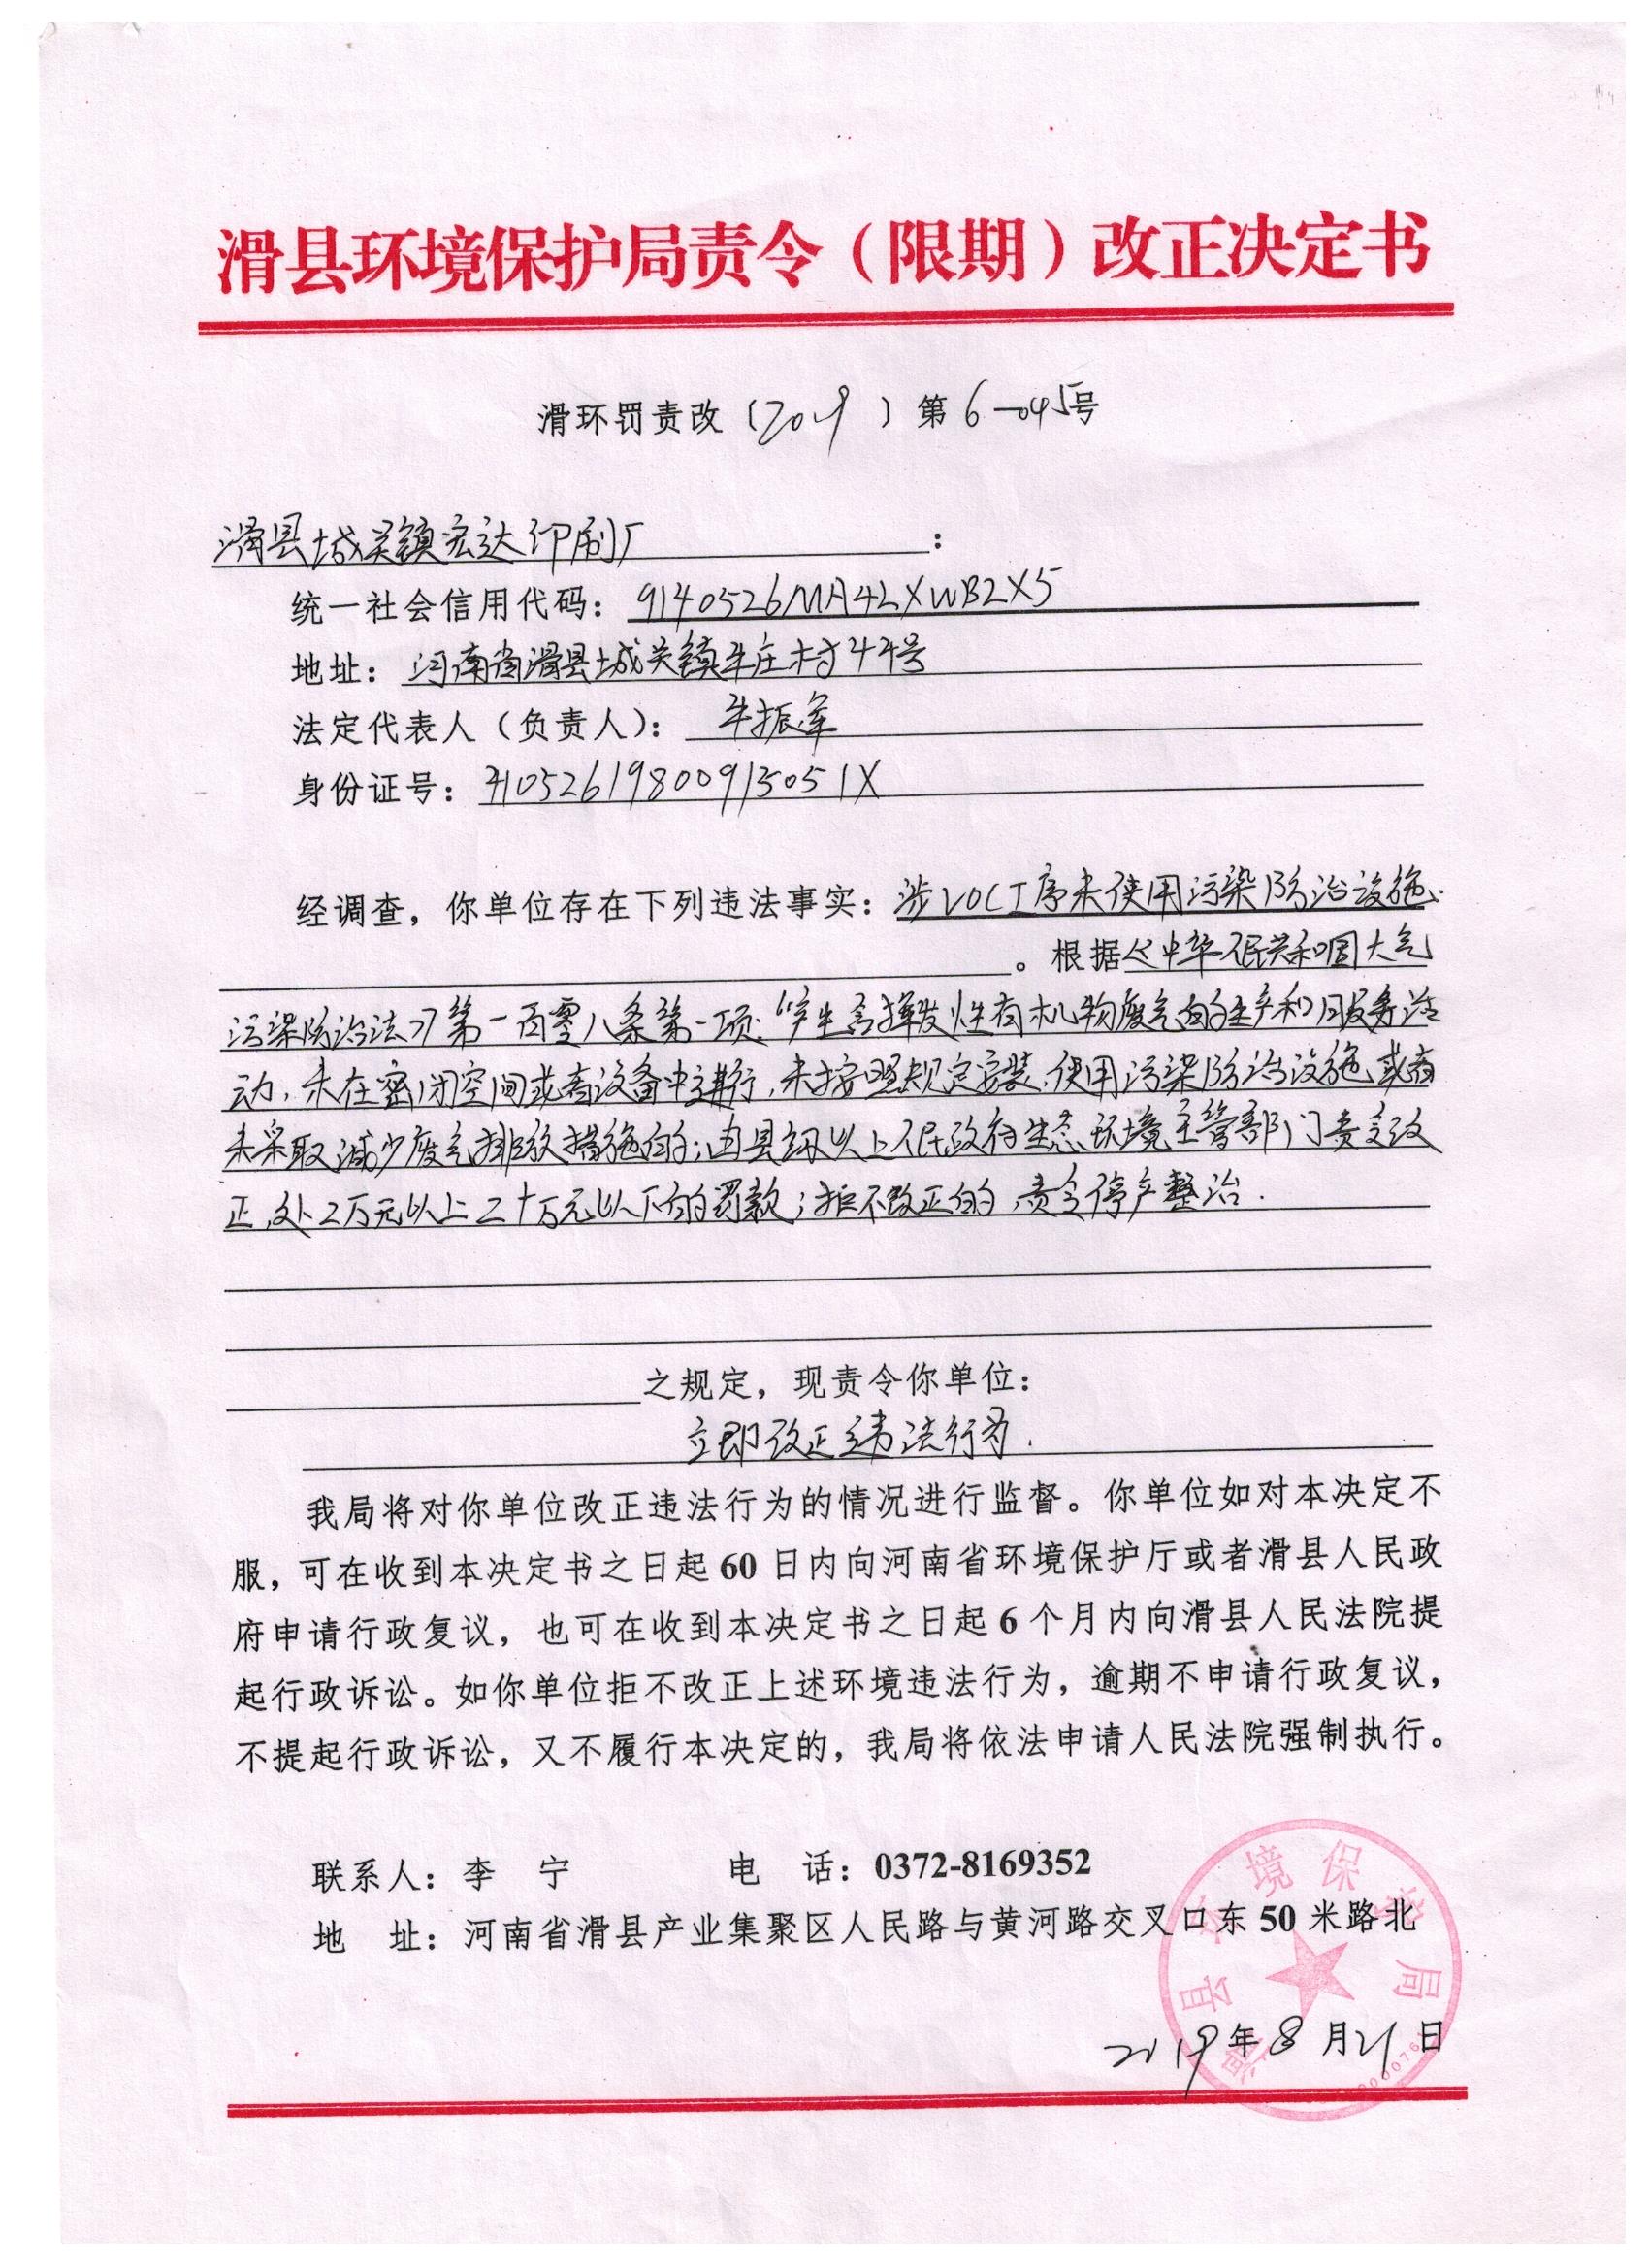 滑县环境保护局责令（限期）改正决定书
滑环罚责改〔2019〕第6-045号
滑县城关镇宏达印刷厂：
统一社会信用代码：9140526MA42XWB2X5
地址：河南省滑县城关镇牛庄村44号
法定代表人（负责人）：牛振军
身份证号：41052619800913051X
经调查，你单位存在下列违法事实：涉VOC工序未使用污染防治设施.
。根据《中华人民共和国大气
污染防治法》第一百零八条第一项：“产生含挥发性有机物废气的生产和服务活
动，未在密闭空间或者设备中进行，未按照规定安装、使用污染防治设施，或者
未采取减少废气排放措施的；由县级以上人民政府生态环境主管部门责令改
正，处2万元以上二十万元以下的罚款；拒不改正的，责令停产整治.
之规定，现责令你单位：
立即改正违法行为.
我局将对你单位改正违法行为的情况进行监督。你单位如对本决定不
服，可在收到本决定书之日起60日内向河南省环境保护厅或者滑县人民政
府申请行政复议，也可在收到本决定书之日起6个月内向滑县人民法院提
起行政诉讼。如你单位拒不改正上述环境违法行为，逾期不申请行政复议，
不提起行政诉讼，又不履行本决定的，我局将依法申请人民法院强制执行。
联系人：李 宁 电 话：0372-8169352
地 址：河南省滑县产业集聚区人民路与黄河路交叉口东50米路北
滑县环境保护局
2019年8月21日